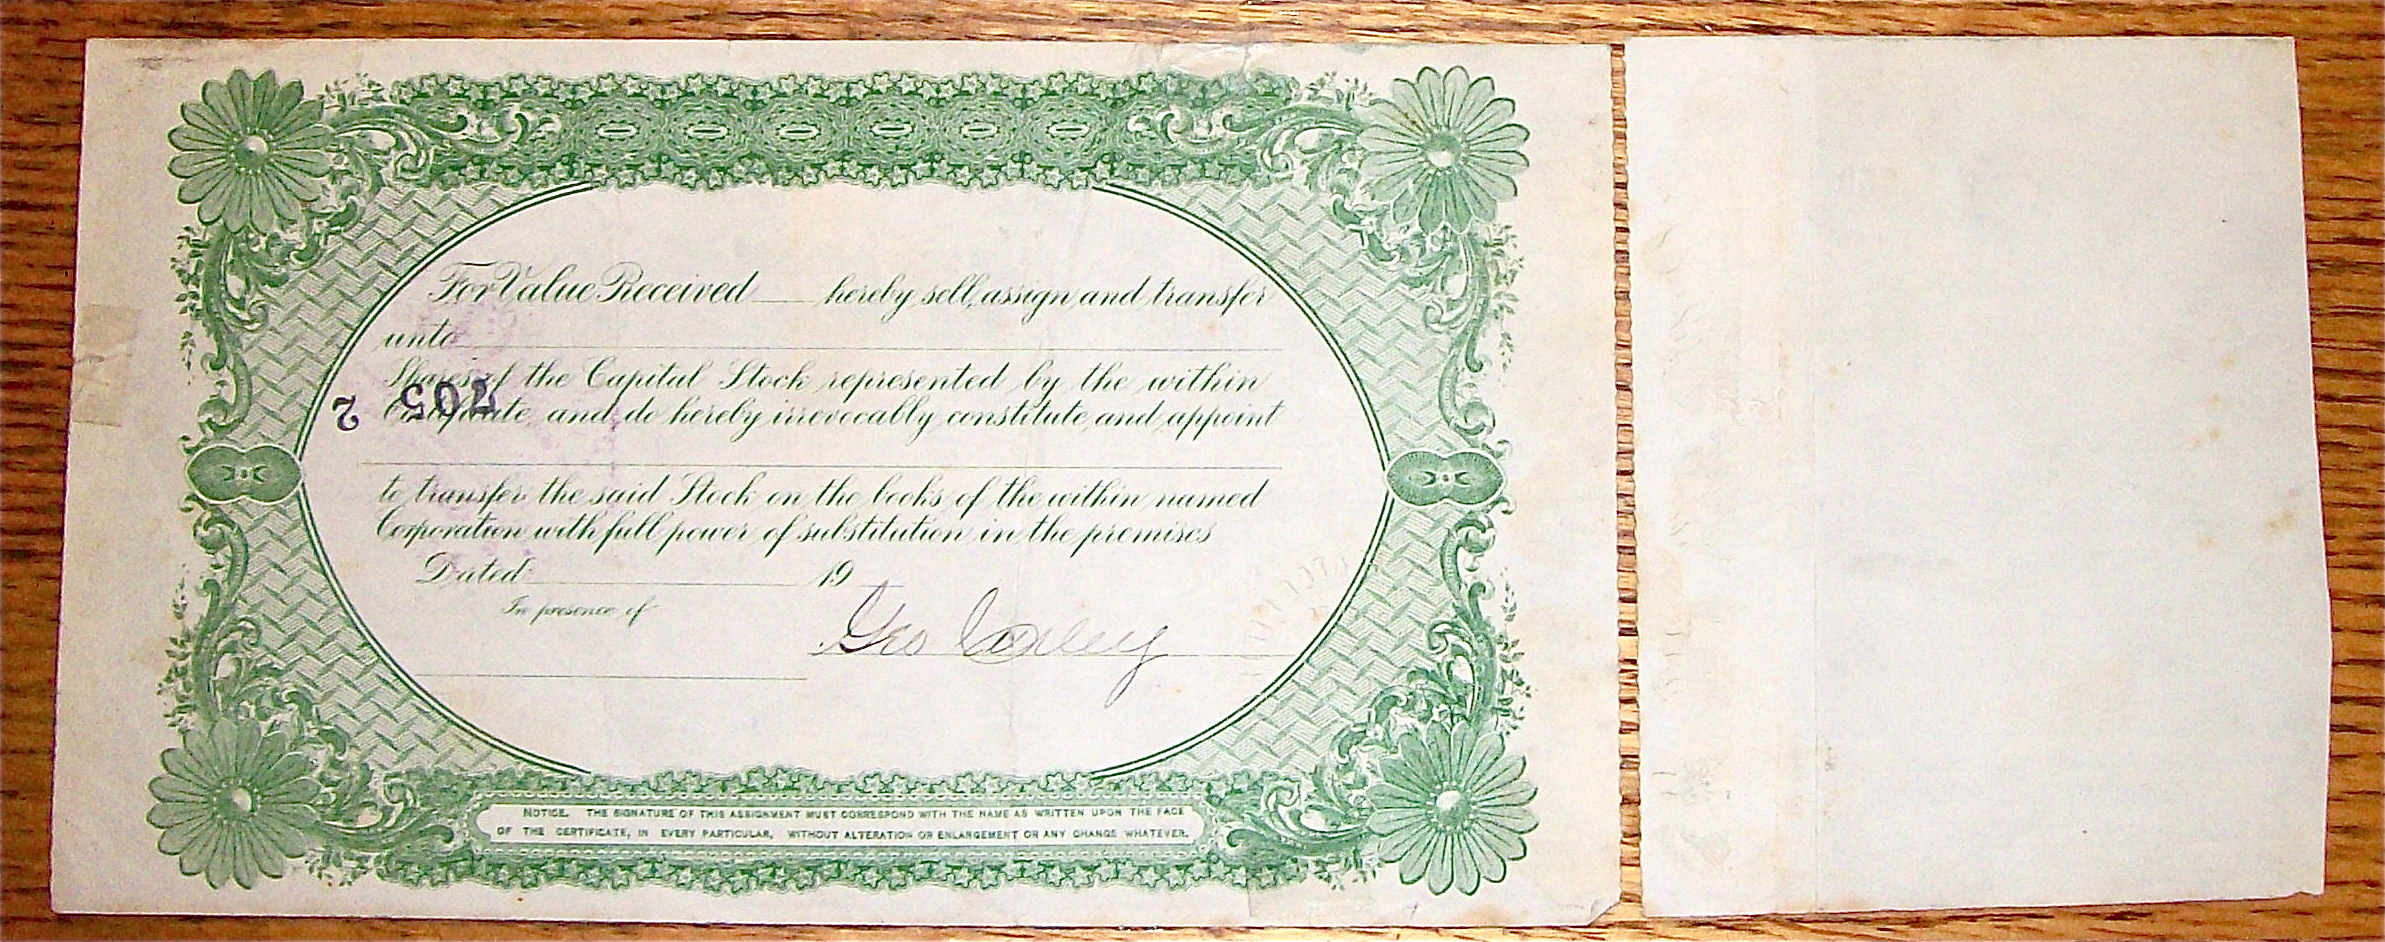 For Value Received ___ hereby sell, assign and transfer
unto
Shares of the Capital Stock represented by the within
Certificate, and do hereby irrevocably constitute and appoint
to transfer the said Stock on the books of the within named
Corporation with full power of substitution in the premises
Dated 19
In presence of
Geo Conley
NOTICE. THE SIGNATURE OF THIS ASSIGNMENT MUST CORRESPOND WITH THE NAME AS WRITTEN UPON THE FACE
OF THE CERTIFICATE, IN EVERY PARTICULAR, WITHOUT ALTERATION OR ENLARGEMENT OR ANY CHANGE WHATEVER.